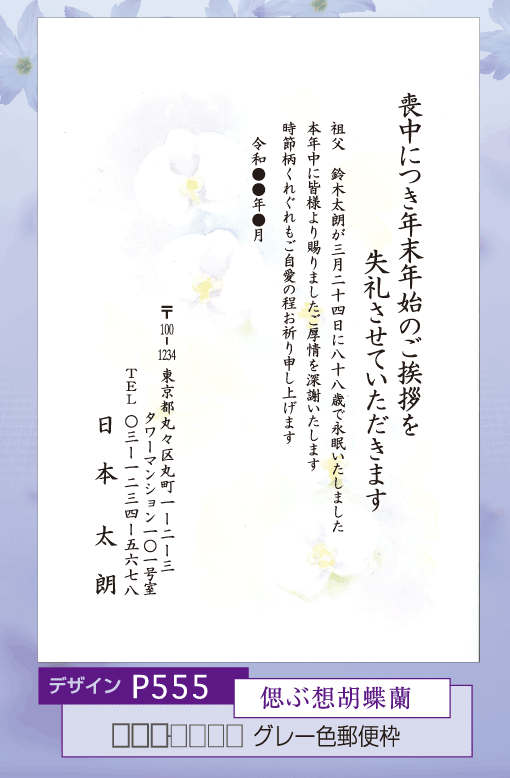 喪中につき年末年始のご挨拶を
失礼させていただきます
祖父　鈴木太朗が三月二十四日に八十八歳で永眠いたしました
本年中に皆様より賜りましたご厚情を深謝いたします
時節柄くれぐれもご自愛の程お祈り申し上げます
令和●●年●月
〒100-1234 東京都丸々区丸町一ー二ー三
タワーマンション一〇一号室
TEL 〇三ー一二三四ー五六七八
日本太朗
デザイン P555
偲ぶ想胡蝶蘭
□□□-□□□□ グレー色郵便枠